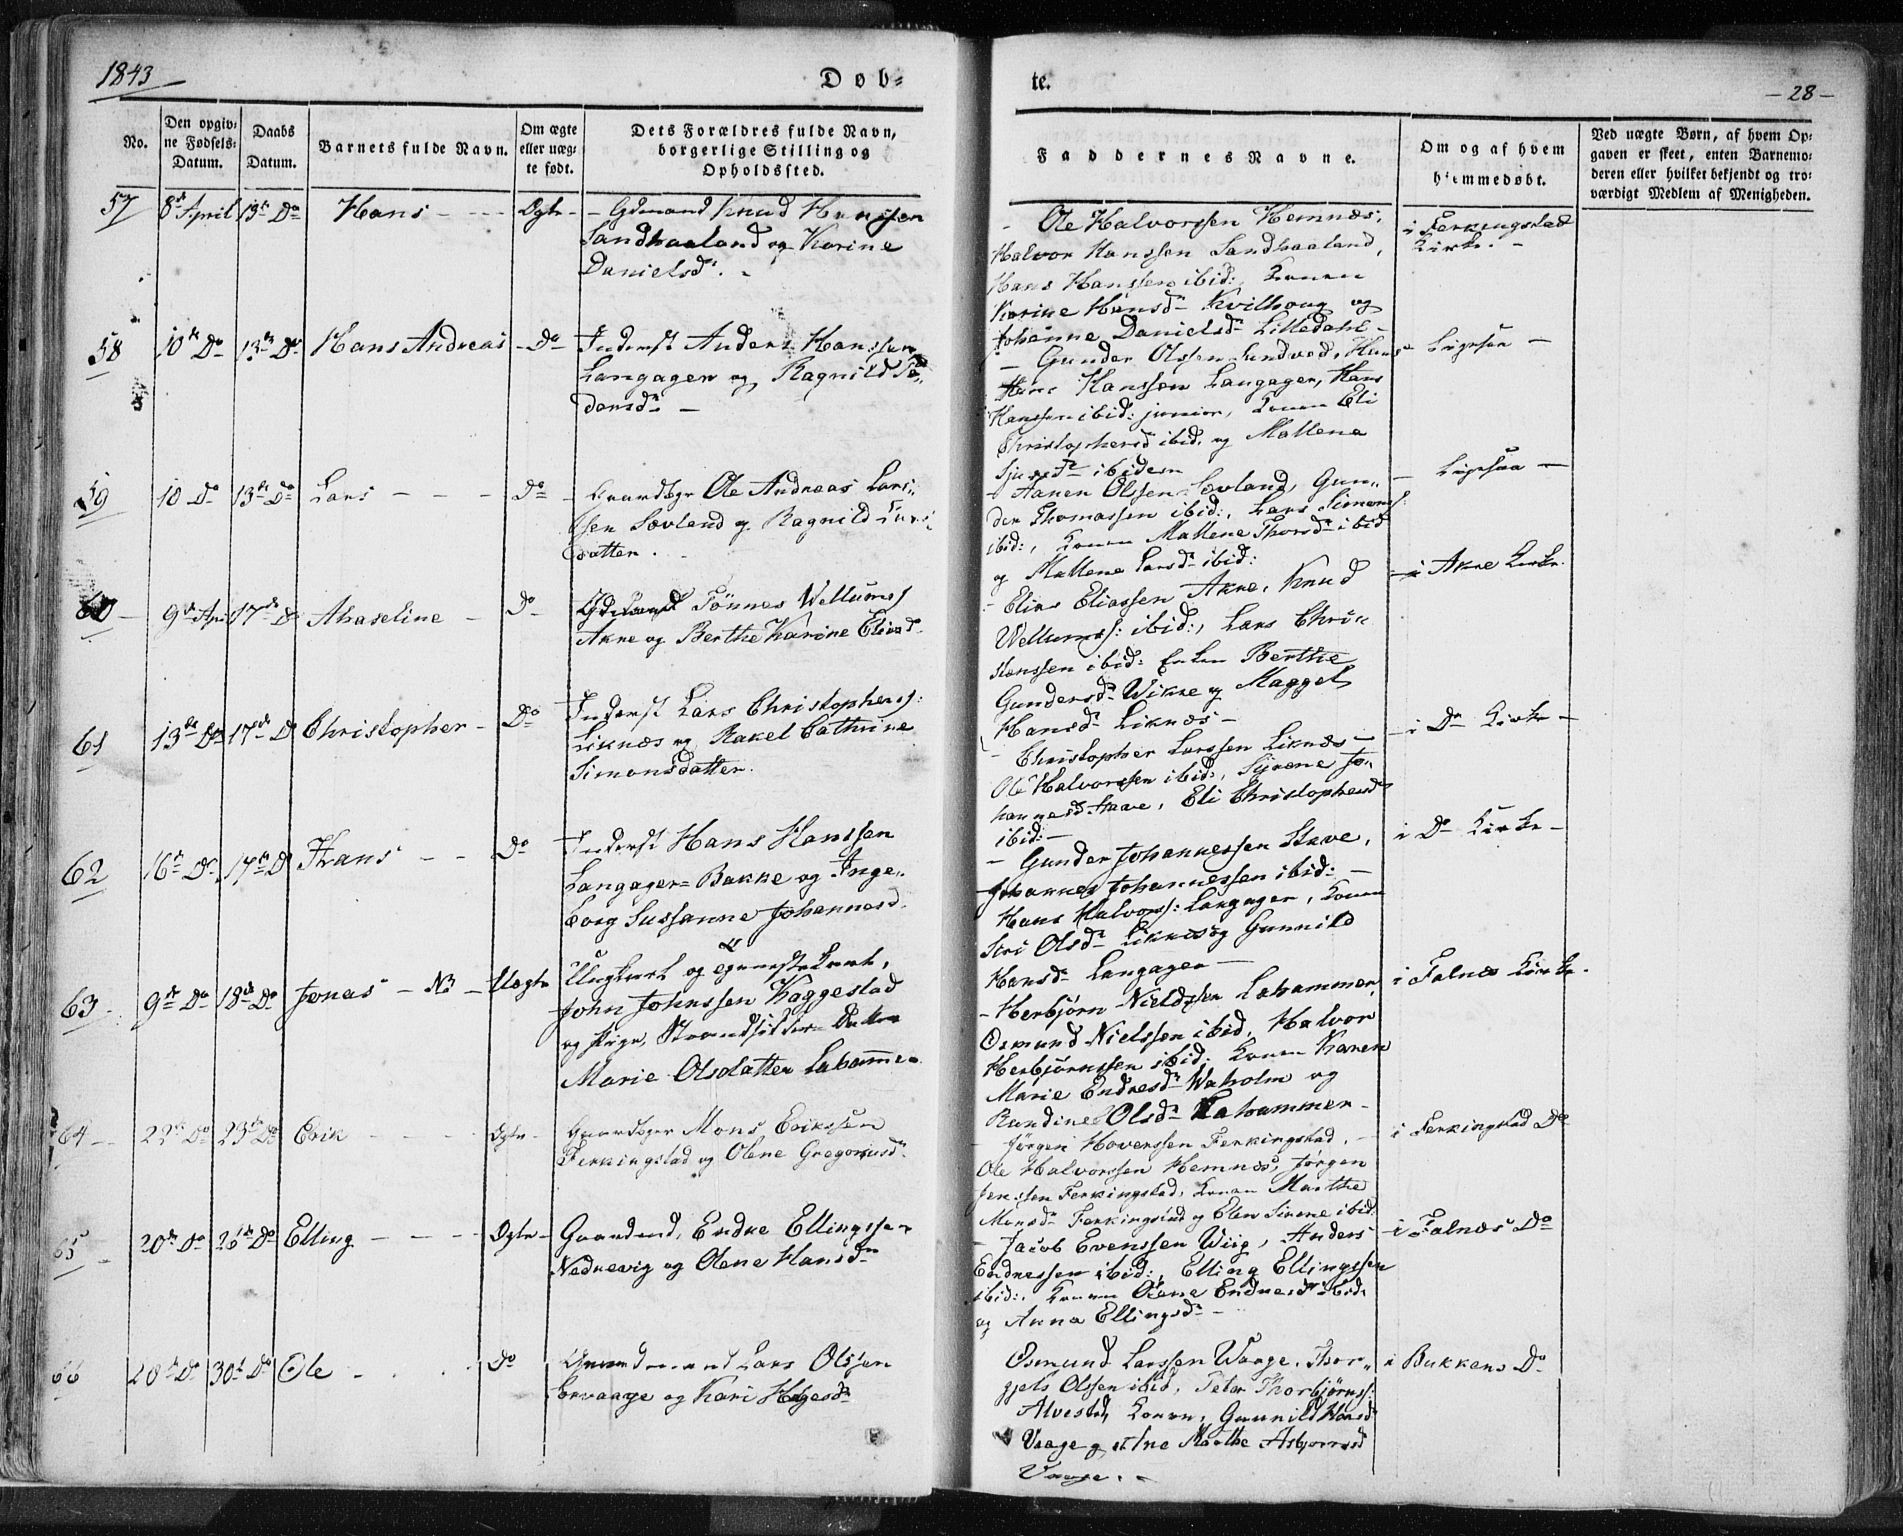 1843
Døb-
te.
- 28 -
No.
Den opgiv-
ne Fødsels-
Datum.
Daabs
Datum.
Barnets fulde Navn.
Om ægte
eller uæg-
te født.
Dets Forældres fulde Navn,
borgerlige Stilling og
Opholdssted.
Faddernes Navne.
Om og af hvem
hjemmedøbt.
Ved uægte Børn, af hvem Op-
gaven er skeet, enten Barnemo-
deren eller hvilket bekjendt og tro-
værdigt Medlem af Menigheden.
57 8de April 13de Do Hans - - - Ægte
- Gdmand Knud Hanssen
Sandhaaland og Karine
Danielsdr. -
- Ole Halvorssen Hemnæs,
Halvor Hanssen Sandhaaland,
Hans Hanssen ibid: Konen
Karine Hansdr Kvilhoug og
Johanne Danielsdr Lilledahl -
i Ferkingstad
Kirke. -
58 10de Do 13de Do Hans Andreas - Do -
Inderst Anders Hanssen
Langager og Ragnild
dansdr -
- Gunder Olssen Sundvod, Hans
Hanssen Langager, Hans
Hanssen ibid: junior, Konen Eli
Christophersd ibid. og Mallene
ibidem
Ligesaa -
59 10 Do 13de Do Lars - - - Do -
Gaardbgr Ole Andreas Lars-
sen Sævland og Ragnild Lars-
datter.
- Aanen Olssen Sævland, Gun-
der Thomassen ibid:, Lars Simons:
ibid:, Konen Mallene Thorsdr ibid
og Mallene Larsdr ibid:
Ligesaa -
60 - 9de Apr 17de Do Ahaseline - Do -
Gdmand Tönnes Wellums:
Akre og Berthe Karine Eliasd
- Elias Eliassen Akre, Knud
Wellums: ibid:, Lars Chri-
stenssen ibid: Enken Berthe
Gundersdr Wikre og Maggel
Hansdr Liknæs -
- i Akre Kirke.
61 13de Do 17de Do Christopher - Do
Inderst Lars Christophers:
Liknæs og Rakel Cathrine
Simonsdatter.
- Christopher Larssen Liknæs -
Ole Halvorssen ibid:, Sirene Jo-
hannesd Haave, Eli Christophersdr
ibid: -
- i Do Kirke -
62 16de Do 17de Do Hans - - Do
Inderst Hans Hanssen
Langager-Bakke og Inge-
borg Sussanne Johannesd.
- Gunder Johannessen Stave,
Johannes Johannessen ibid: -
Hans Halvors: Langager, Konen
Siri Olsdr Liknes og Gunnild
Hansdr Langager -
i Do Kirke -
63 9de Do 18de Do Jonas - N3 - Uægte
Ungkarl og
John Johnssen Haggestad
og Pige, Strandsidder Datter
Marie Olsdatter Lahammer.
- Herbjörn Nielssen Lahammer,
Osmund Nielssen ibid, Halvor
Herbjörnssen ibid: Konen Karen
Marie Endresdr Waholm og
Randine Olsdr Lahammer -
i Falnæs Kirke.
64 - 22de Do 23de Do Erik - - - Ægte -
Gaardbgr Mons Erikssen
Ferkingstad og Olene Gregoriusdr
- Jörgen Hoverssen Ferkingstad, -
Ole Halvorssen Hemnæs, Jörgen
Jenssen Ferkingstad, Konen Marthe
Monsdr Ferkingstad og Elen Sirene ibid:
i Ferkingstad Do
65 - 20de Do 26de Do Elling - - - Ægte -
Gaardmd, Endre Ellingssen
Nedrevig og Olene Hansdr
- Jacob Evenssen Wiig, Anders
Endressen ibid:, Elling Ellingssen
ibid:, Konen Olene Endresdr ibid:
og Anna Ellingsdr -
- i Falnæs Do
66 28de Do 30te Do Ole - - - Do
Gaardmand Lars Olssen
og Kari Helgesdr
Osmund Larssen Waage, Thor-
gjels Olssen ibid, Peter Thorbjörns:
Alvestad, Konen, Gunnild Hansd
Vaage og Marthe Asbjornsd
Vaage. -
i Bukkens Do